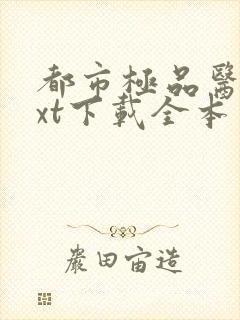 都市極品醫
xt下載全本
嚴田宙造